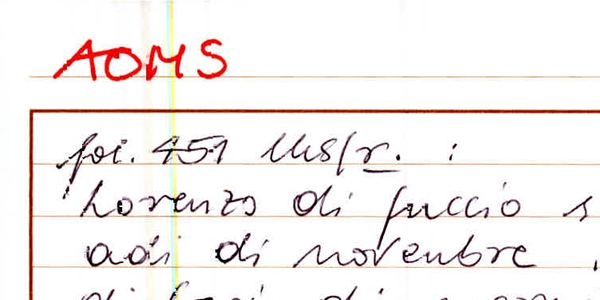 AOMS
fol. 451 Ms/r. :
Lorenzo di puccio s
adi di novenbre